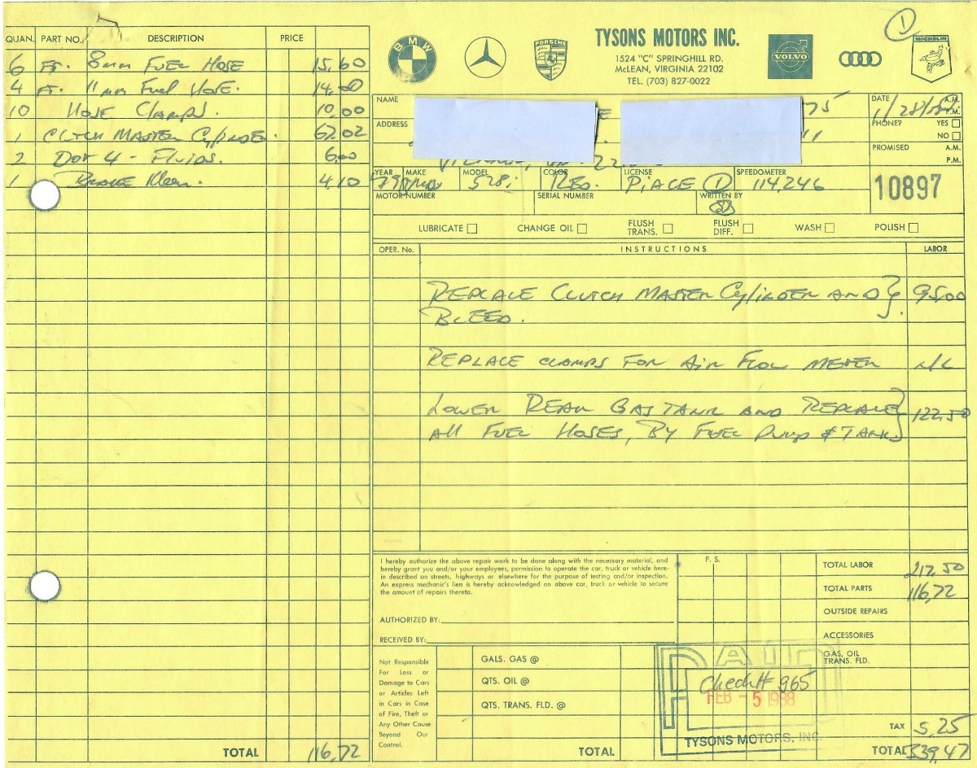 QUAN. PART NO. DESCRIPTION PRICE
6 FT. 8mm FUEL HOSE 15.60
4 FT. 11mm FUEL HOSE. 14.00
10 HOSE CLAMPS. 10.00
1 CLUTCH MASTER CYLINDER. 67.02
2 DOT 4 - FLUIDS. 6.00
1 BRAKE KLEEN. 4.10
TOTAL 116.72
BMW
PORSCHE
TYSONS MOTORS INC.
1524 "C" SPRINGHILL RD.
McLEAN, VIRGINIA 22102
TEL. (703) 827-0022
VOLVO
MICHELIN
1
NAME
ADDRESS
DATE 1/28/88 A.M.
P.M.
PHONE? YES
NO
PROMISED A.M.
P.M.
YEAR MAKE MODEL COLOR LICENSE SPEEDOMETER
79 BMW 528i RED. PIACE 1 114,246
10897
MOTOR NUMBER SERIAL NUMBER WRITTEN BY
LUBRICATE CHANGE OIL FLUSH TRANS. FLUSH DIFF. WASH POLISH
OPER. No. INSTRUCTIONS LABOR
REPLACE CLUTCH MASTER CYLINDER AND 95.00
BLEED.
REPLACE CLAMPS FOR AIR FLOW METER N/C
LOWER REAR GAS TANK AND REPLACE 122.50
ALL FUEL HOSES, BY FUEL PUMP & TANK
I hereby authorize the above repair work to be done along with the necessary material, and
hereby grant you and/or your employees, permission to operate the car, truck or vehicle here-
in described on streets, highways or elsewhere for the purpose of testing and/or inspection.
An express mechanic's lien is hereby acknowledged on above car, truck or vehicle to secure
the amount of repairs thereto.
AUTHORIZED BY:
RECEIVED BY:
Not Responsible
For Loss or
Damage to Cars
or Articles Left
in Cars in Case
of Fire, Theft or
Any Other Cause
Beyond Our
Control.
GALS. GAS @
QTS. OIL @
QTS. TRANS. FLD. @
TOTAL
F. S.
PAID
Check# 965
FEB - 5 1988
TYSONS MOTORS, INC.
TOTAL LABOR 217.50
TOTAL PARTS 116.72
OUTSIDE REPAIRS
ACCESSORIES
GAS, OIL
TRANS. FLD.
TAX 5.25
TOTAL 339.47